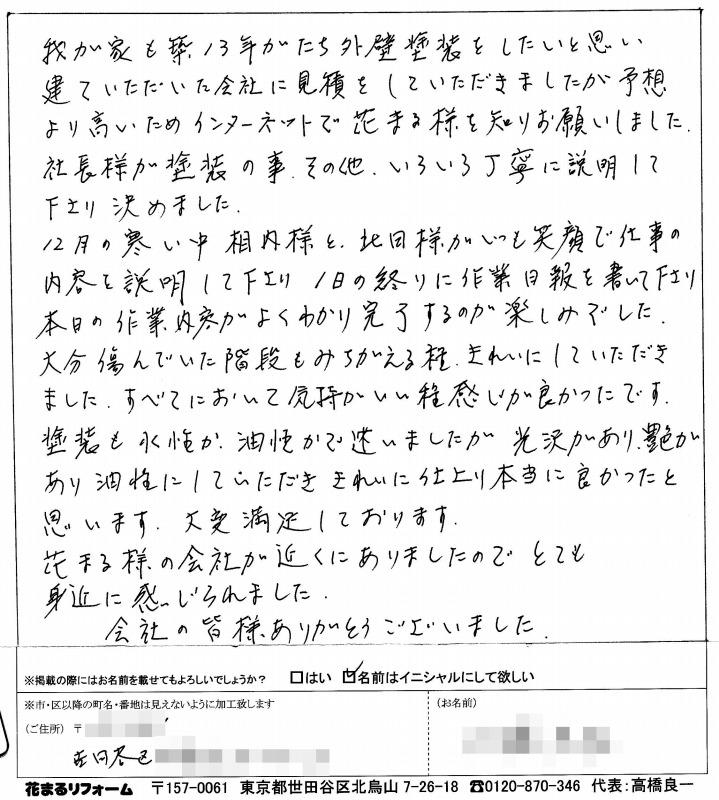 我が家も築13年がたち外壁塗装をしたいと思い
建ていただいた会社に見積をしていただきましたが予想
より高いためインターネットで花まる様を知りお願いしました.
社長様が塗装の事.その他.いろいろ丁寧に説明して
下さり決めました.
12月の寒い中相内様と.北田様がいつも笑顔で仕事の
内容を説明して下さり1日の終りに作業日報を書いて下さり
本日の作業内容がよくわかり完了するのが楽しみでした.
大分傷んでいた階段もみちがえる程.きれいにしていただき
ました.すべてにおいて気持がいい程感じが良かったです.
塗装も水性か.油性かで迷いましたが光沢があり.艶が
あり油性にしていただききれいに仕上り本当に良かったと
思います.大変満足しております.
花まる様の会社が近くにありましたのでとても
身近に感じられました.
会社の皆様ありがとうございました.
※掲載の際にはお名前を載せてもよろしいでしょうか? □はい ☑名前はイニシャルにして欲しい
※市・区以降の町名・番地は見えないように加工致します
(お名前)
(ご住所) 〒
世田谷区
花まるリフォーム 〒157-0061 東京都世田谷区北烏山 7-26-18 ☎0120-870-346 代表:高橋良一